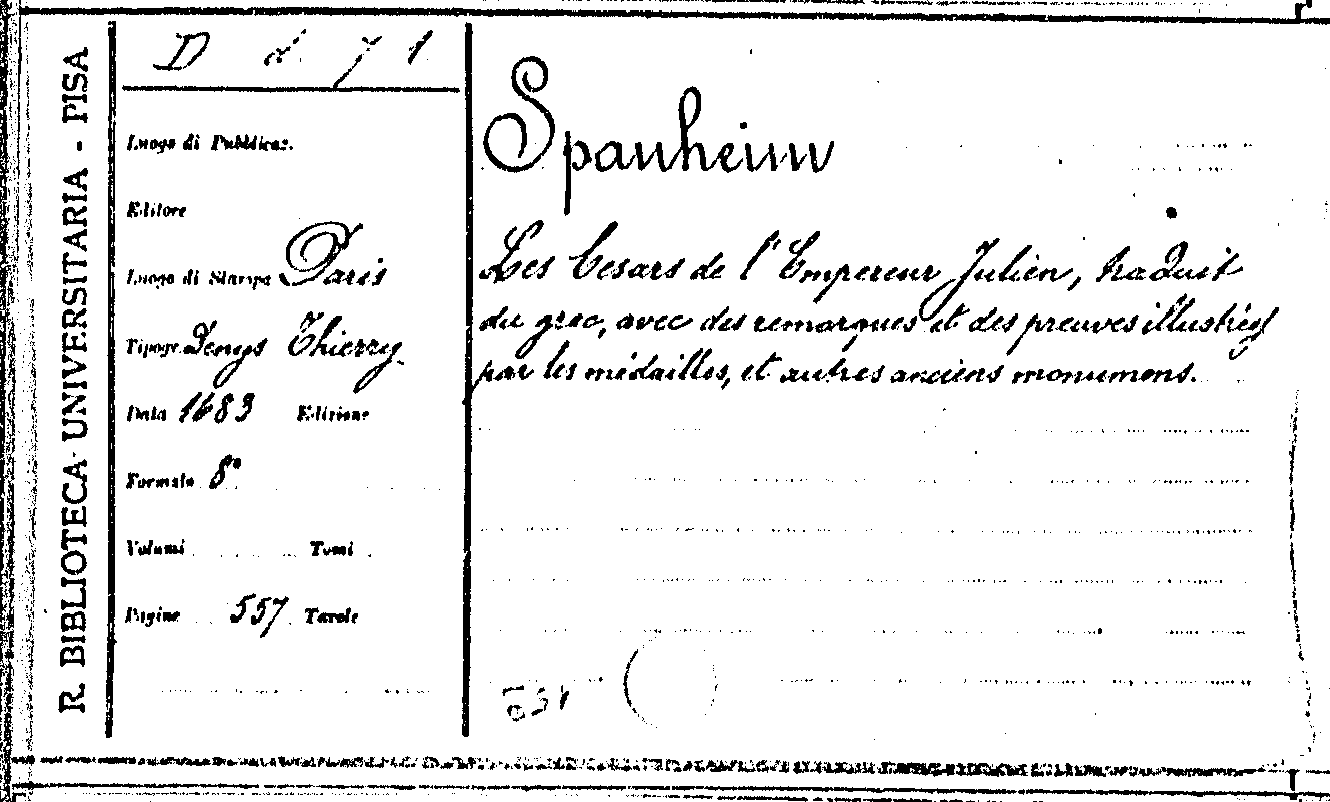 R. BIBLIOTECA UNIVERSITARIA - PISA
D d. 7 1
Luogo di Pubblicaz.
Editore
Luogo di Stampa Paris
Tipogr. Denys Thierry
Data 1683 Edizione
Formato 8°
Volumi Tomi
Pagine 557 Tavole
Spanheim
Les Cesars de l'Empereur Julien, traduit
du grec, avec des remarques et des preuves illustrées
par les médailles, et autres anciens monumens.